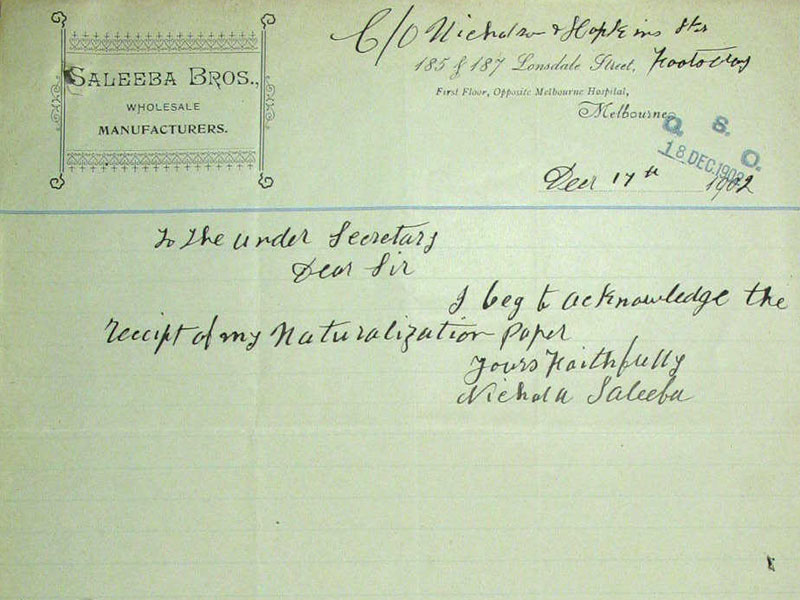 SALEEBA BROS.,
WHOLESALE
MANUFACTURERS.
C/O Nicholson & Hopkins Sts
185 & 187 Lonsdale Street, Footscray
First Floor, Opposite Melbourne Hospital,
Melbourne,
O. S. O.
18 DEC. 1902
Decr 17th 1902
To The Under Secretary
Dear Sir
I beg to acknowledge the
receipt of my Naturalization paper
Yours Faithfully
Nichola Saleeba